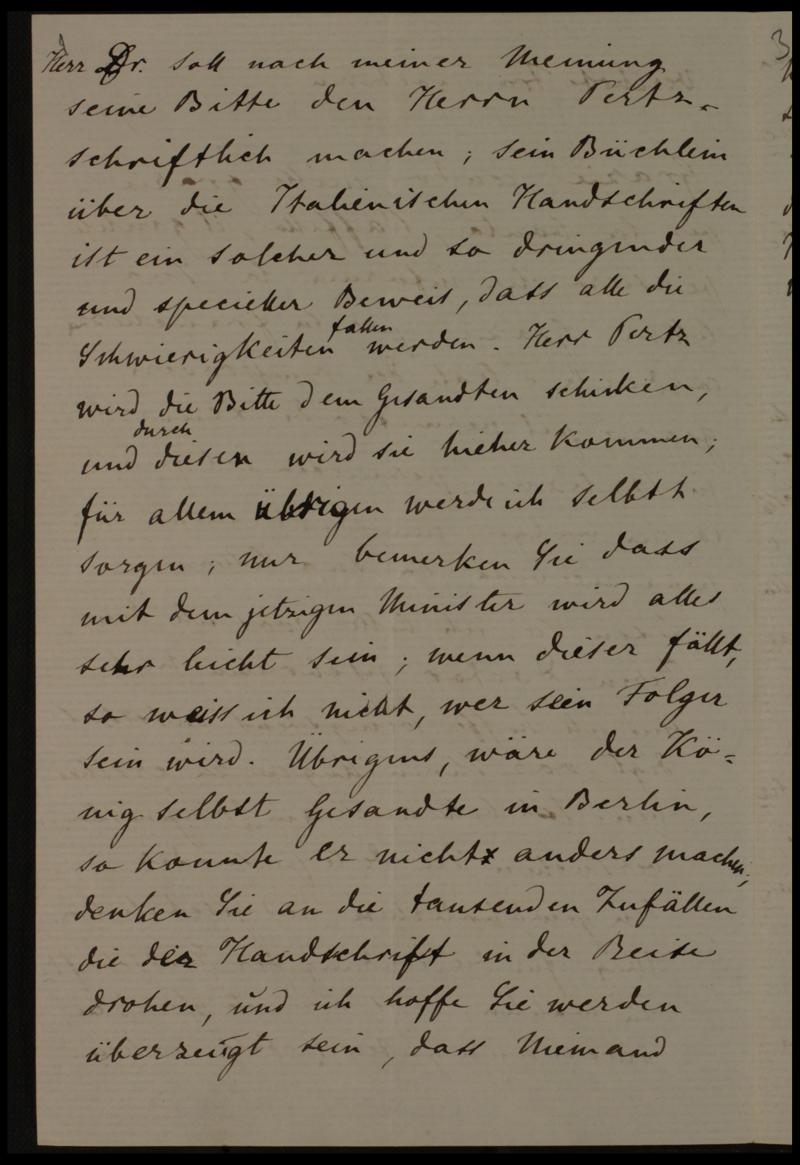 Herr Dr. soll nach meiner Meinung
seine Bitte den Herrn Pertz
schriftlich machen; sein Büchlein
über die Italienischen Handschriften
ist ein solcher und so dringender
und specieller Beweis, dass alle die
Schwierigkeiten fallen werden. Herr Pertz
wird die Bitte dem Gesandten schicken,
und durch diesen wird sie hieher kommen;
für allem übrigen werde ich selbst
sorgen; nur bemerken Sie dass
mit dem jetzigen Minister wird alles
sehr leicht sein; wenn dieser fällt,
so weiss ich nicht, wer sein Folger
sein wird. Übrigens, wäre der Kö=
nig selbst Gesandte in Berlin,
so konnte er nicht anders machen;
denken Sie an die tausenden Zufällen
die der Handschrift in der Reise
drohen, und ich hoffe Sie werden
überzeugt sein, dass Niemand